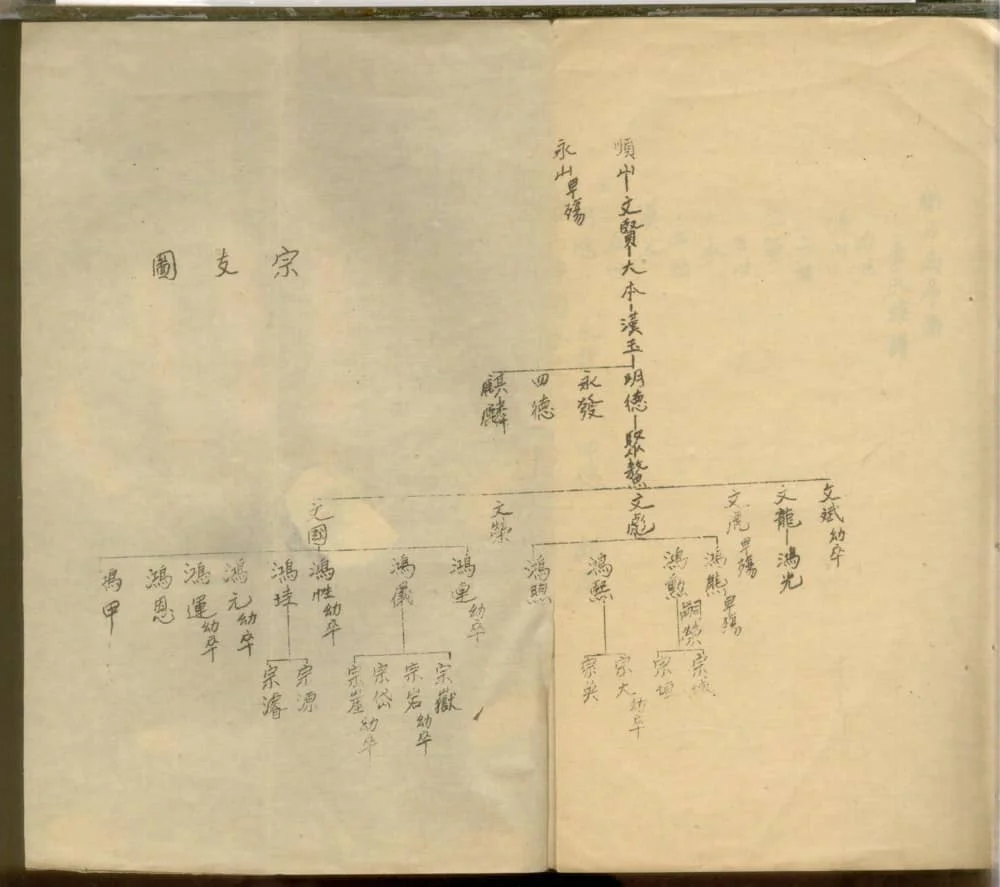 宗支圖
順山文賢大本漢玉明德聚鰲
永山早殤
永發
四德
麒麟
文斌幼卒
文龍鴻光
文彪
文虎早殤
文榮
文國
鴻熊早殤
鴻勲嗣榮
鴻熙
鴻煦
鴻連幼卒
鴻儀
鴻性幼卒
鴻元幼卒
鴻運幼卒
鴻恩
鴻甲
宗垣
宗大幼卒
宗英
宗嶽
宗岩幼卒
宗岱
宗崖幼卒
宗源
宗濬